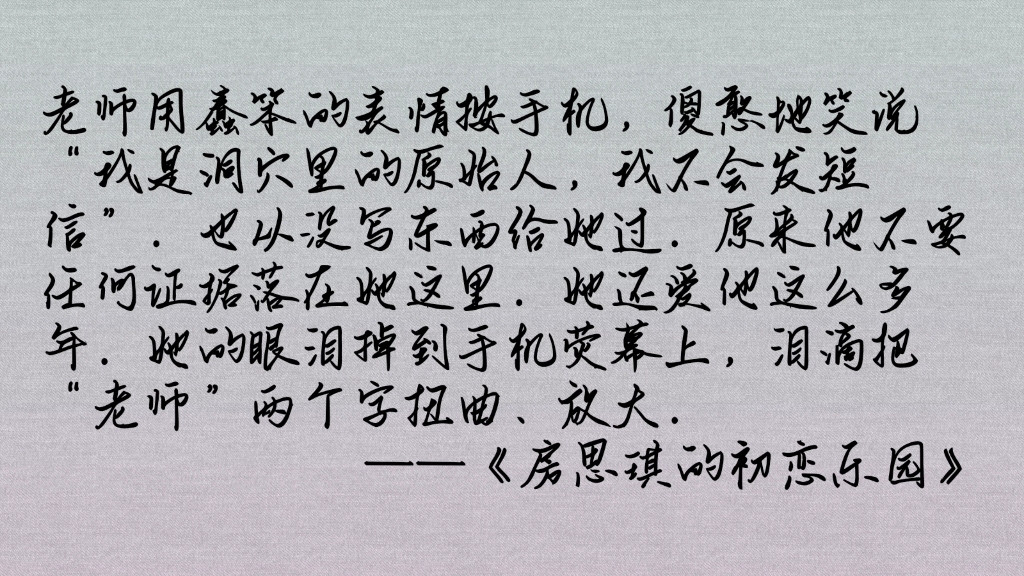 老师用蠢笨的表情按手机，傻憨地笑说
“我是洞穴里的原始人，我不会发短
信”．也从没写东西给她过．原来他不要
任何证据落在她这里．她还爱他这么多
年．她的眼泪掉到手机荧幕上，泪滴把
“老师”两个字扭曲、放大．
——《房思琪的初恋乐园》